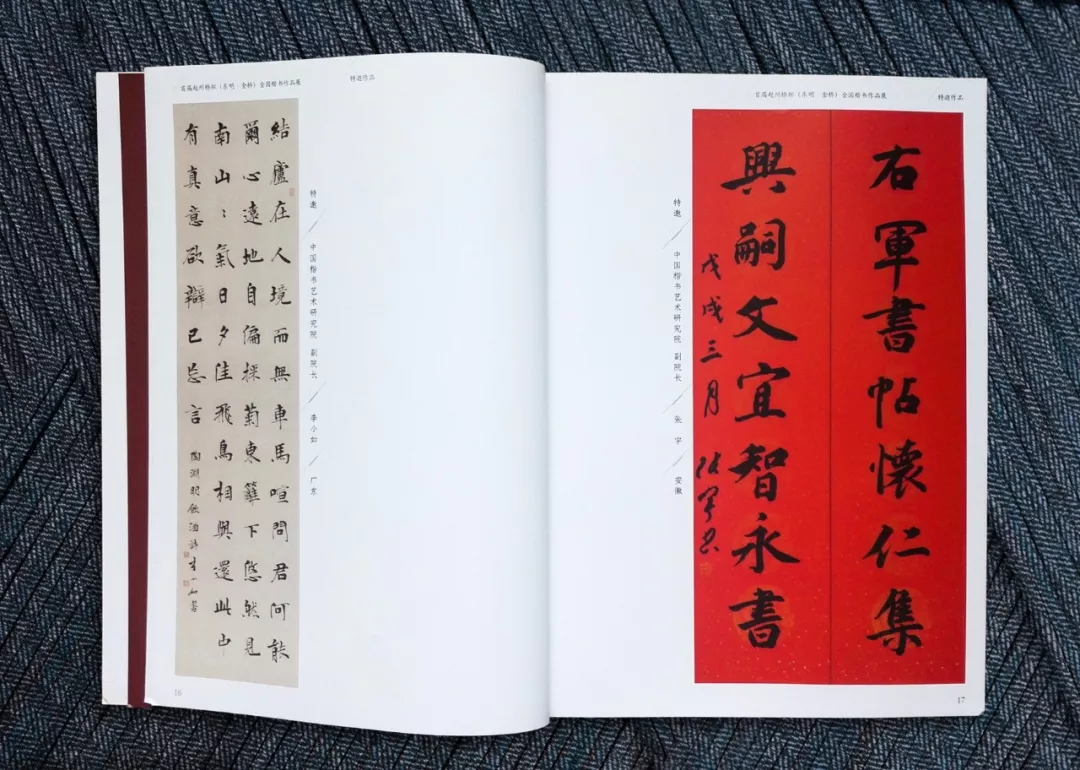 首届赵州桥杯（东明·金桥）全国楷书作品展
特邀作品
結廬在人境而無車馬喧問君何能
爾心遠地自偏採菊東籬下悠然見
南山〻氣日夕佳飛鳥相與還此中
有真意欲辯已忘言 陶淵明飲酒詩 李小如書
特邀／中国楷书艺术研究院 副院长／李小如／广东
16
首届赵州桥杯（东明·金桥）全国楷书作品展
特邀作品
右軍書帖懷仁集
興嗣文宜智永書
戊戌三月 张宇书
特邀／中国楷书艺术研究院 副院长／张宇／安徽
17